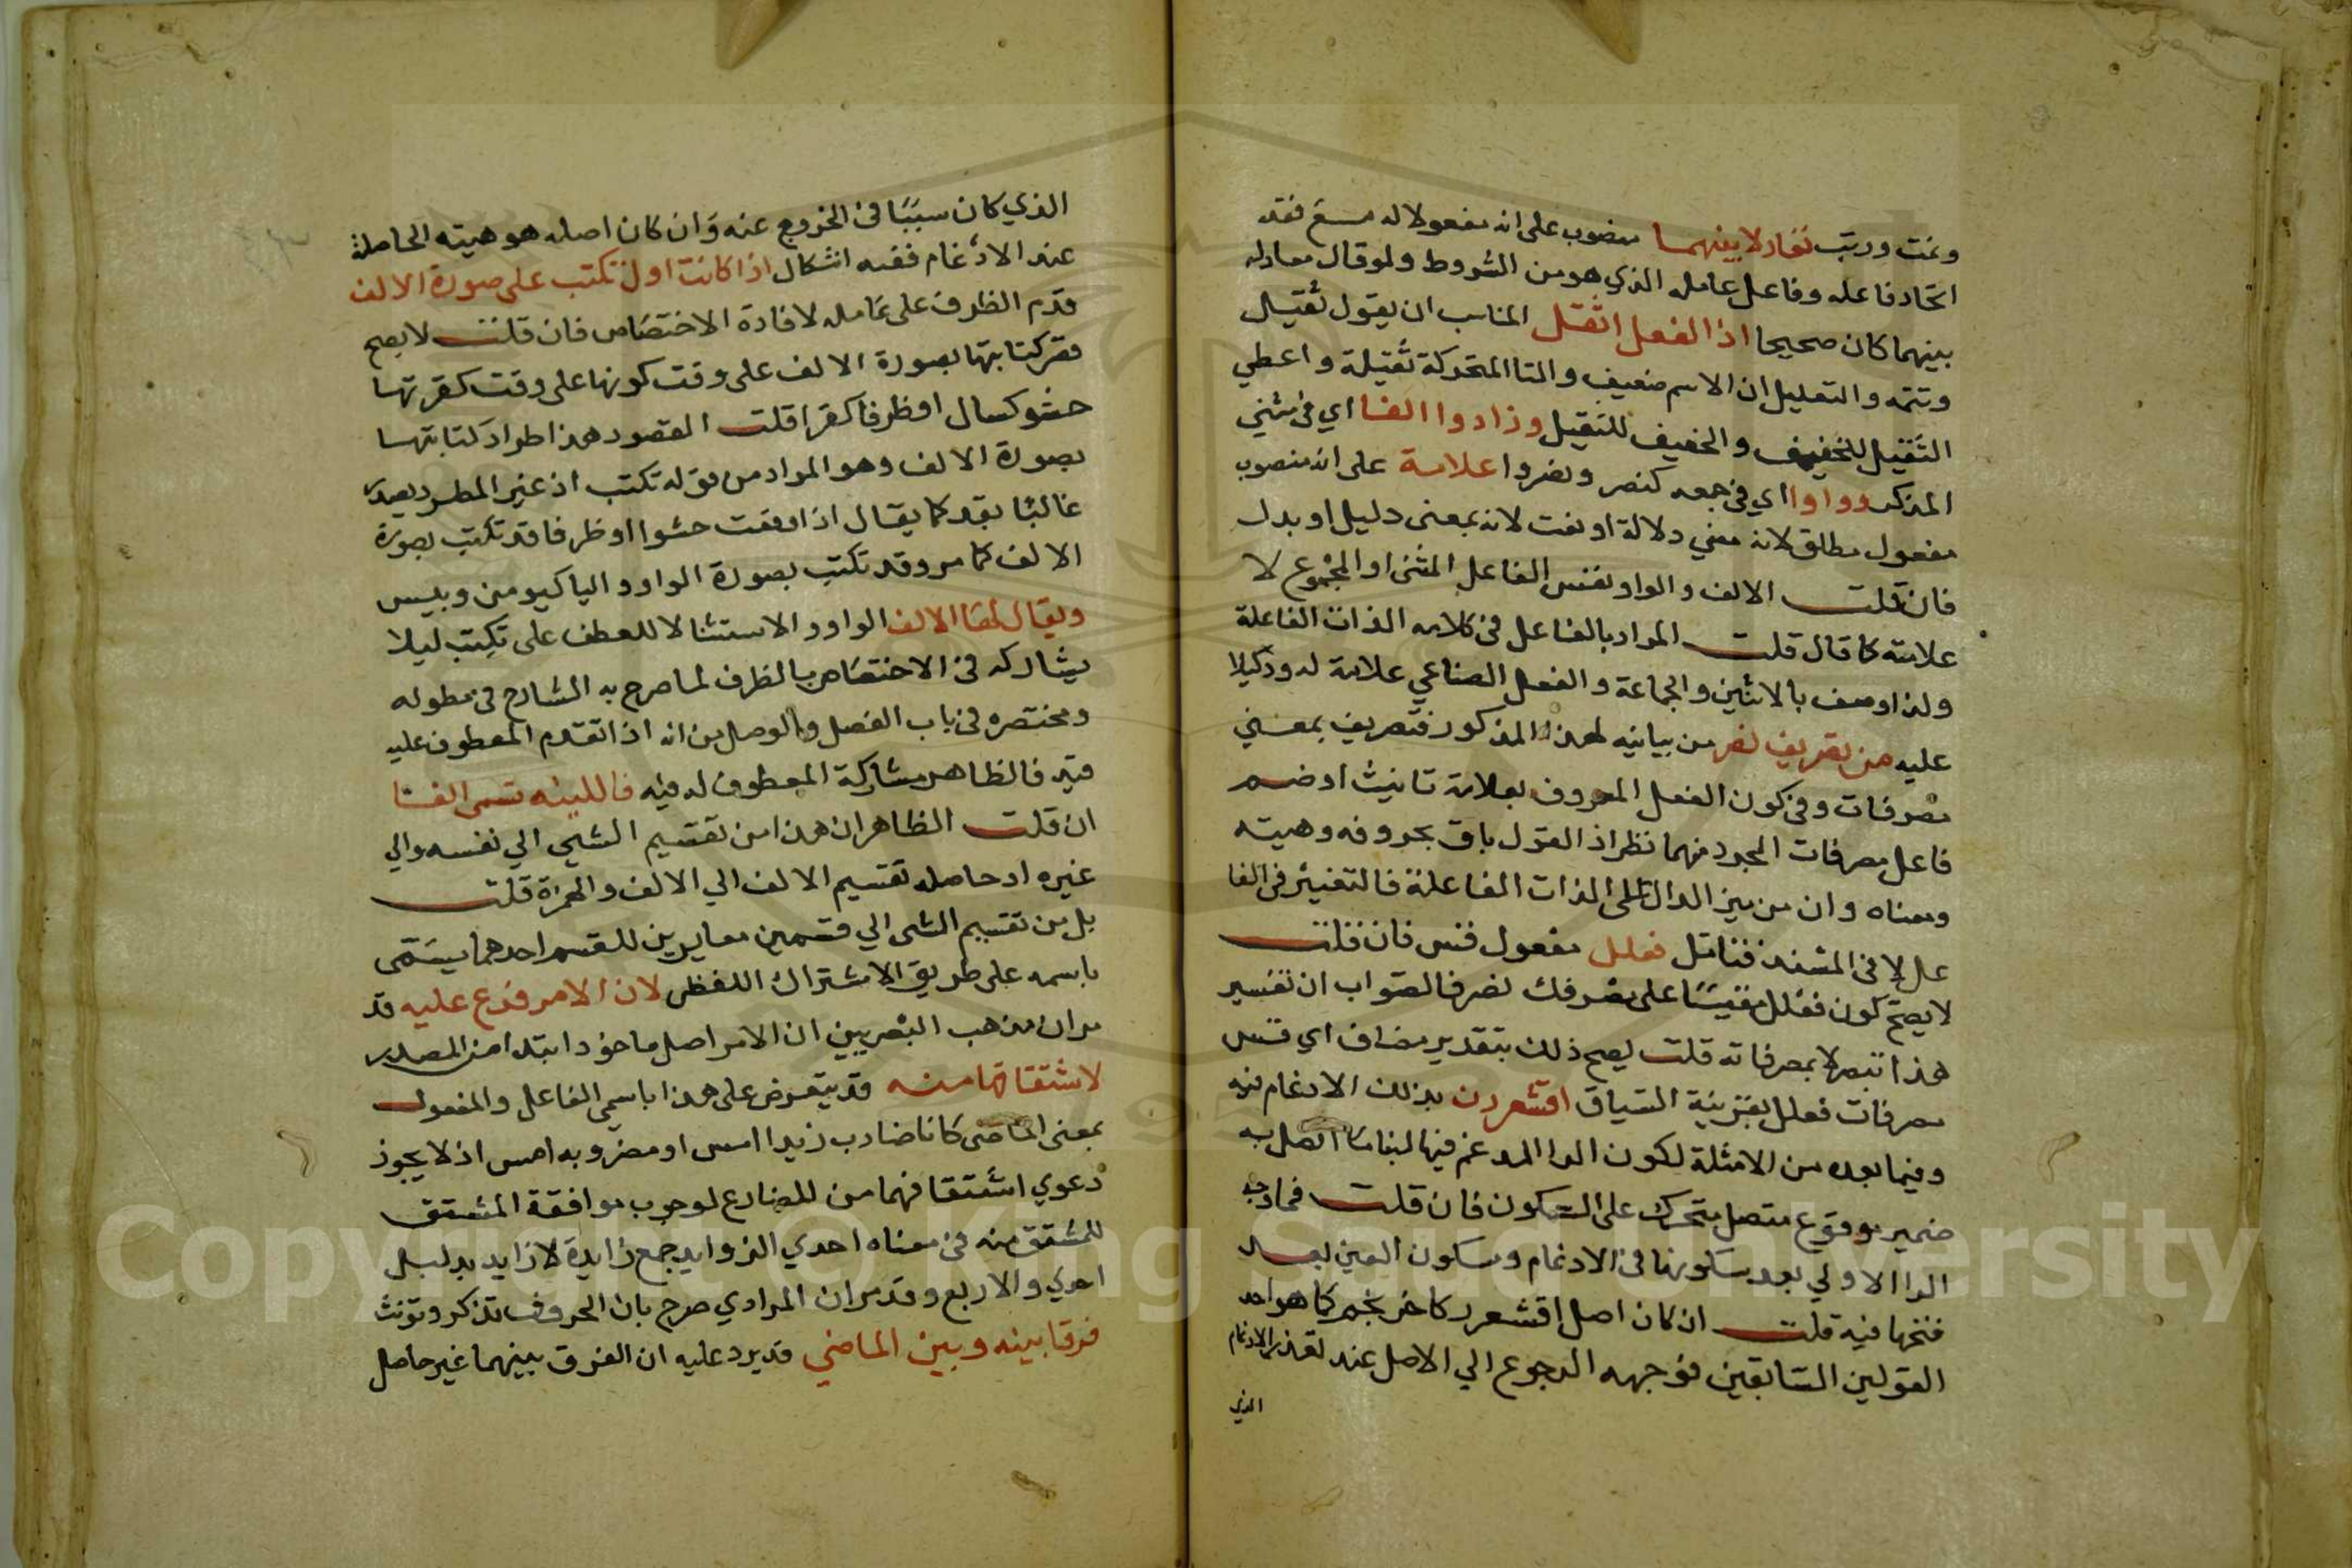 ونمت وربت تعادلا بينهما منصوب على انه مفعولا له مع فقد
اتحاد فاعله وفاعل عامله الذي هو من الشروط ولو قال معادله
بينهما كان صحيحا اذ الفعل اثقل المناسب ان يقول ثقيل
وتتمه والتعليل ان الاسم ضعيف والتا المتحركة ثقيلة واعطي
الثقيل للخفيف والخفيف للثقيل وزادوا الفا اي في مثني
المذكر وواوا اي في جمعه كنصر ونصروا علامة على انه منصوب
مفعول مطلق لانه معني دلالة او نعت لانه بمعنى دليل او بدل
فان قلت الالف والواو نفس الفاعل المثنى او المجموع لا
علامته كما قال قلت المراد بالفاعل في كلامه الذات الفاعلة
ولذا وصف بالاثنين والجماعة والفعل الصناعي علامة له
عليه من تصريف نصر من بيانيه لهذا المذكور فتصريف بمعني
تصرفات وفي كون الفعل المعروف بعلامة تانيث او ضم
فاعل مصرفات المجرد منهما نظر اذ القول باق بحروفه وهيته
ومعناه وان من ميز الدال على الذات الفاعلة فالتغيير في الفا
عل لا في المسند فتامل فعلل مفعول قس فان قلت
لا يصح كون فعلل مقيسا على تصرفك نصر فالصواب ان تفسير
هذا تبصر لا بمصرفاته قلت يصح ذلك بتقدير مضاف اي قس
مصرفات فعلل بقرينة السياق اقشعررن بذلك الادغام فيه
وفيما بعده من الامثلة لكون الرا المدغم فيها لبنا ما اتصل به
ضمير مرفوع متصل متحرك على السكون فان قلت فما وجه
الرا الاولي بعد سكونها في الادغام وسكون العين بعد
فتحها فيه قلت ان كان اصل اقشعرر كاخرنجم كما هو احد
القولين السابقين فوجهه الرجوع الي الاصل عند تعذر الادغام
الذي
الذي كان سببا في الخروج عنه وان كان اصله هو هيته الحاصلة
عند الادغام ففيه اشكال اذا كانت اولا تكتب على صورة الالف
قدم الظرف على عامله لافادة الاختصاص فان قلت لا يصح
قصر كتابتها بصورة الالف على وقت كونها على وقت كقرتها
حشو كسال او ظرفا كقرا قلت المقصود هذا طراد كتابتها
بصورة الالف وهو المراد من قوله تكتب اذ غير المطرد يعبر
غالبا بقد كما يقال اذا وقعت حشوا او ظرفا قد تكتب بصورة
الالف كما مر وقد تكتب بصورة الواو والياء كيومن وبيس
ويقال لها الالف الواو والاستثنا لا للعطف على تكتب ليلا
يشاركه في الاختصاص بالظرف لما صرح به الشارح في مطوله
ومختصره في باب الفصل والوصل من انه اذا تقدم المعطوف عليه
قيد فالظاهر مشاركة المعطوف له فيه فاللينه تسمى الفا
ان قلت الظاهر ان هذا من تقسيم الشي الي نفسه والي
غيره اذ حاصله تقسيم الالف الي الالف والهمزة قلت
بل من تقسيم الشي الي قسمين مغايرين للقسم احدهما يسمى
باسمه على طريق الاشتراك اللفظي لان الامر فرع عليه قد
مر ان مذهب البصريين ان الامر اصل ماخوذ ابتدا من المصدر
لاشتقاقها منه قد يتعرض على هذا باسمي الفاعل والمفعول
بمعنى الماضى كانا ضارب زيدا امس او مضروبه امس اذ لا يجوز
دعوي اشتقاقهما من المضارع لوجوب موافقة المشتق
للمشتق منه في معناه احدي الزوايد جمع زايدة لا زايد بدليل
احدي والاربع وقد مر ان المرادي صرح بان الحروف تذكر وتونث
فرقا بينه وبين الماضي قد يرد عليه ان الفرق بينهما غير حاصل
Copyright © King Saud University